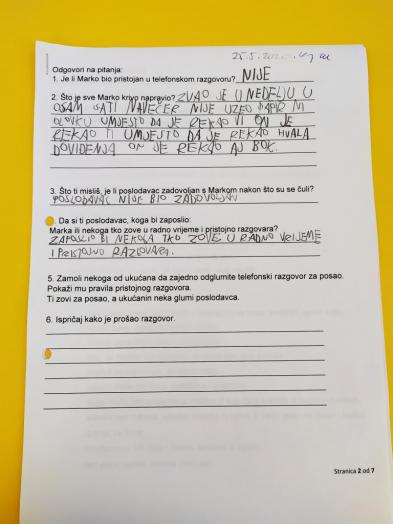 25.5.
Odgovori na pitanja:
1. Je li Marko bio pristojan u telefonskom razgovoru? NIJE
2. Što je sve Marko krivo napravio? ZVAO JE U NEDELJU U
OSAM SATI NAVEČER NIJE UZEO PAPIR NI
OLOVKU UMJESTO DA JE REKAO VI ON JE
REKAO TI UMJESTO DA JE REKAO HVALA
DOVIĐENJA ON JE REKAO AJ BOK.
3. Što ti misliš, je li poslodavac zadovoljan s Markom nakon što su se čuli?
POSLODAVAC NIJE BIO ZADOVOLJAN
. Da si ti poslodavac, koga bi zaposlio:
Marka ili nekoga tko zove u radno vrijeme i pristojno razgovara?
ZAPOSLIO BI NEKOGA TKO ZOVE U RADNO VRIJEME
I PRISTOJNO RAZGOVARA.
5. Zamoli nekoga od ukućana da zajedno odglumite telefonski razgovor za posao.
Pokaži mu pravila pristojnog razgovora.
Ti zovi za posao, a ukućanin neka glumi poslodavca.
6. Ispričaj kako je prošao razgovor.
Stranica 2 od 7